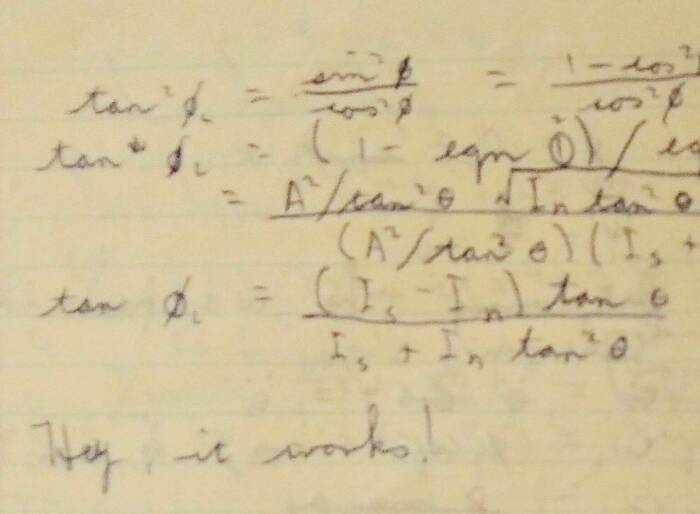 tan² φ₁ = sin² φ / cos² φ = 1 - cos² / cos² φ
tan² φ₁ = (1 - eqn ①²) / eq
= A²/tan² θ √Iₙ tan² θ / (A²/tan² θ) (Iₛ +
tan φ₁ = (Iₛ - Iₙ) tan θ / Iₛ + Iₙ tan² θ
Hey, it works!